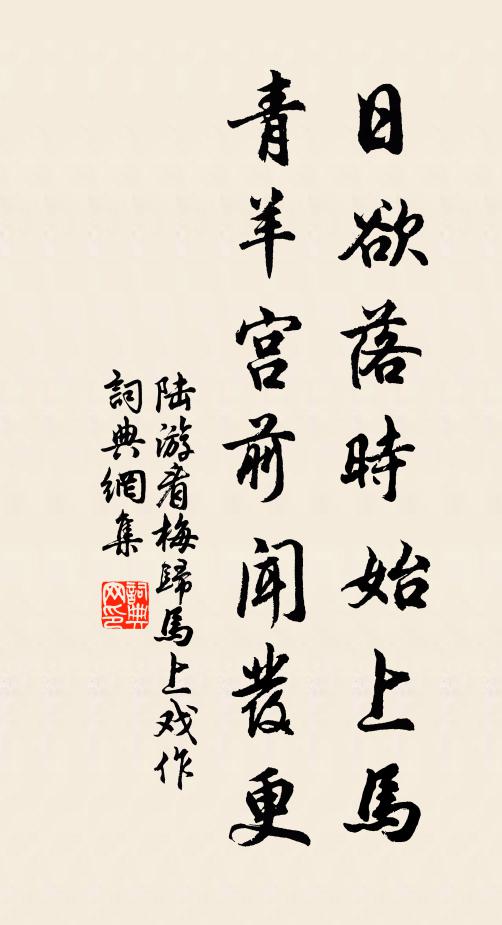 日欲落時始上馬
青羊宮前聞發更
陆游看梅歸馬上戏作
詞典網集
詞典网印